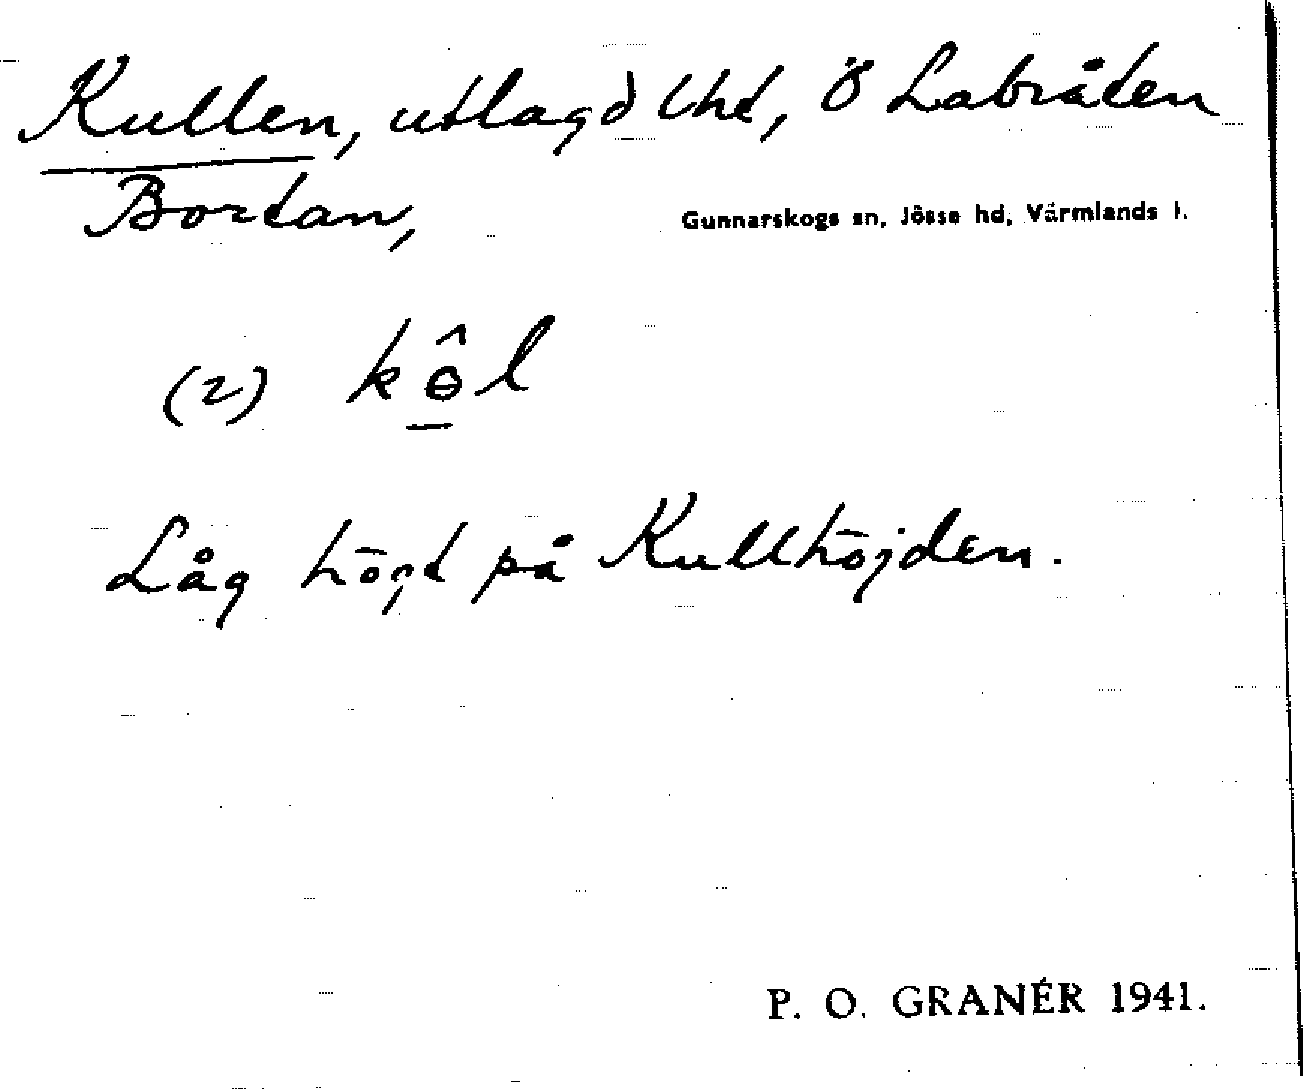 Kullen, utlagd lht, Ö Labråten
Bortan,
Gunnarskogs sn, Jösse hd, Värmlands l.
(2) kɵ̞̂l
Låg högt på Kullhöjden.
P. O. GRANÉR 1941.